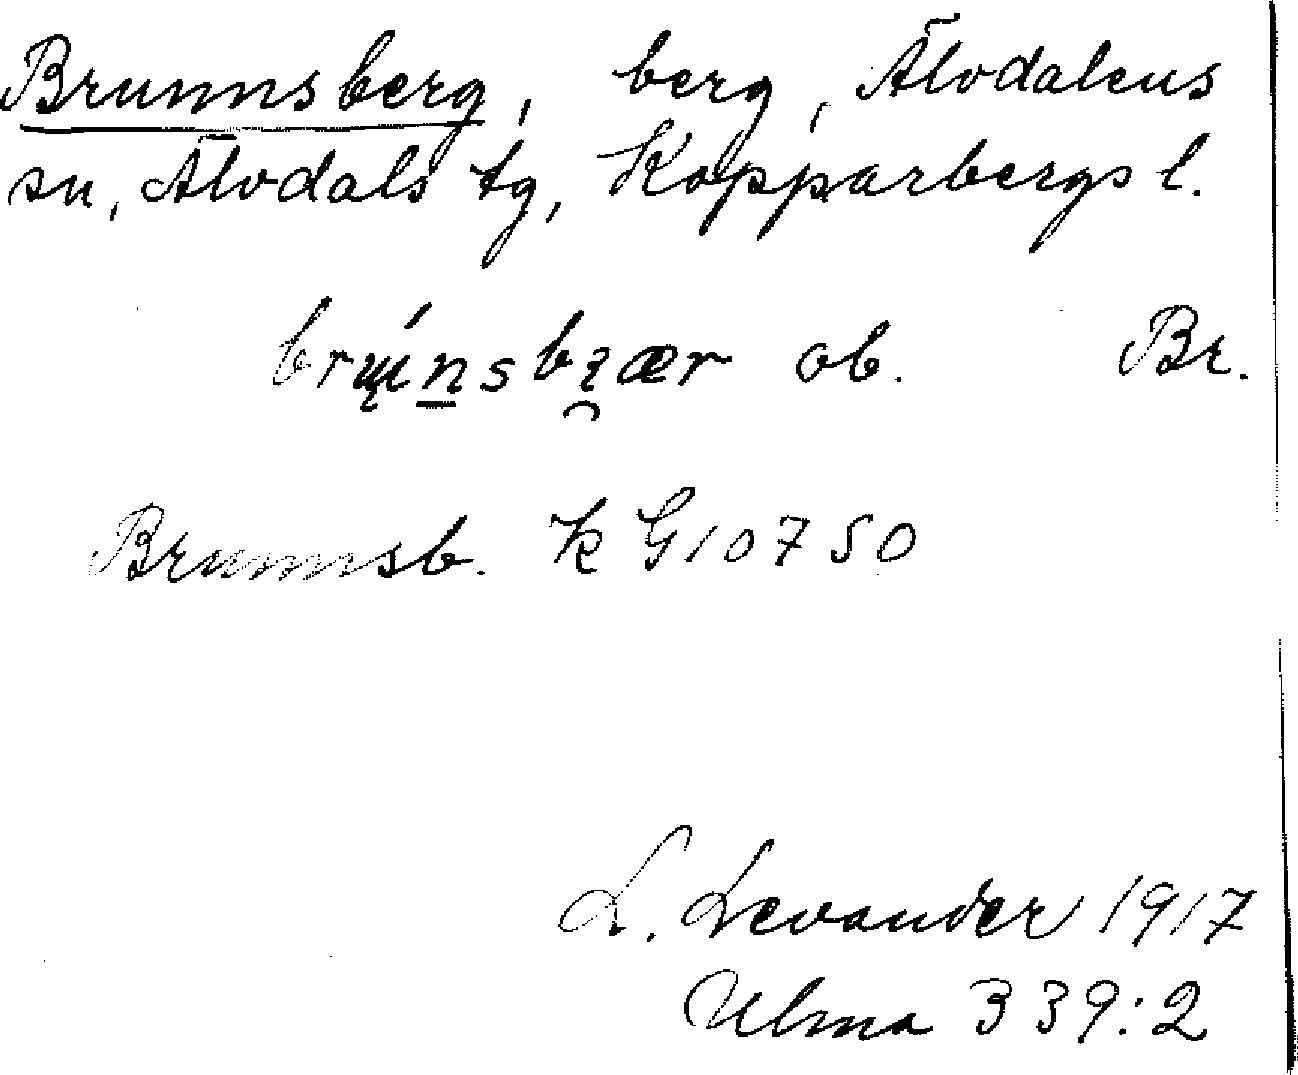 Brunnsberg, berg, Älvdalens
sn, Älvdals tg, Kopparbergs l.
ob. Br.
Brunnsb. K G10750
L. Levander 1917
Ulma 339:2